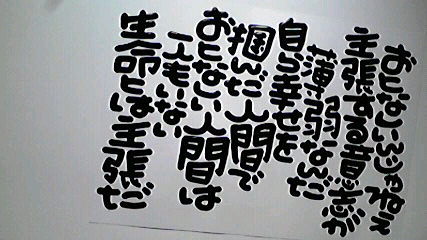 おとなしいんじゃねぇ
主張する意志が
薄弱なんだ
自ら幸せを
掴んだ人間で
おとなしい人間は
一人もいない
生命とは主張だ